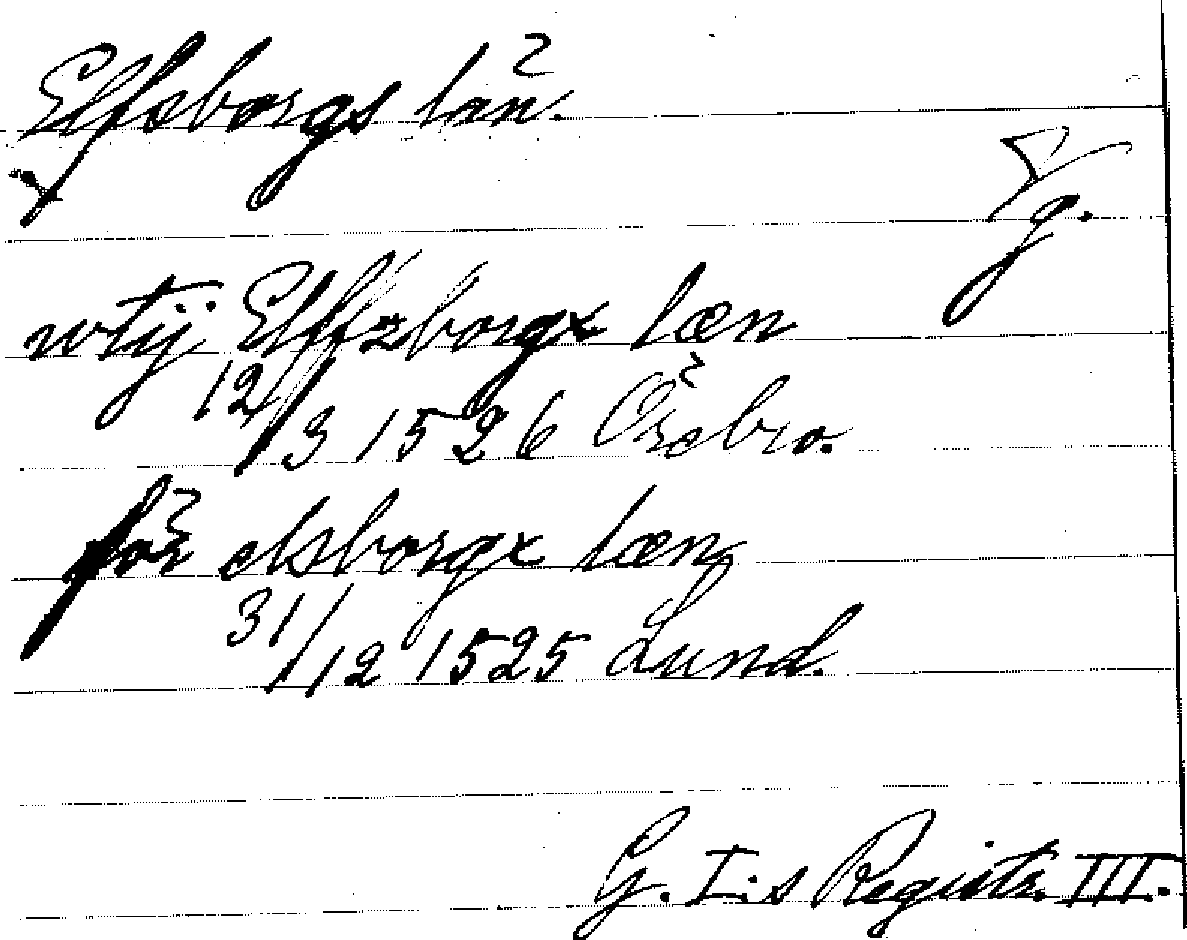 Elfsborgs län.
Vg.
wtij Elffzborgx læn
12/3 1526 Örebro.
för elsborgx læn
31/12 1525 Lund.
G. I:s Registr. III.